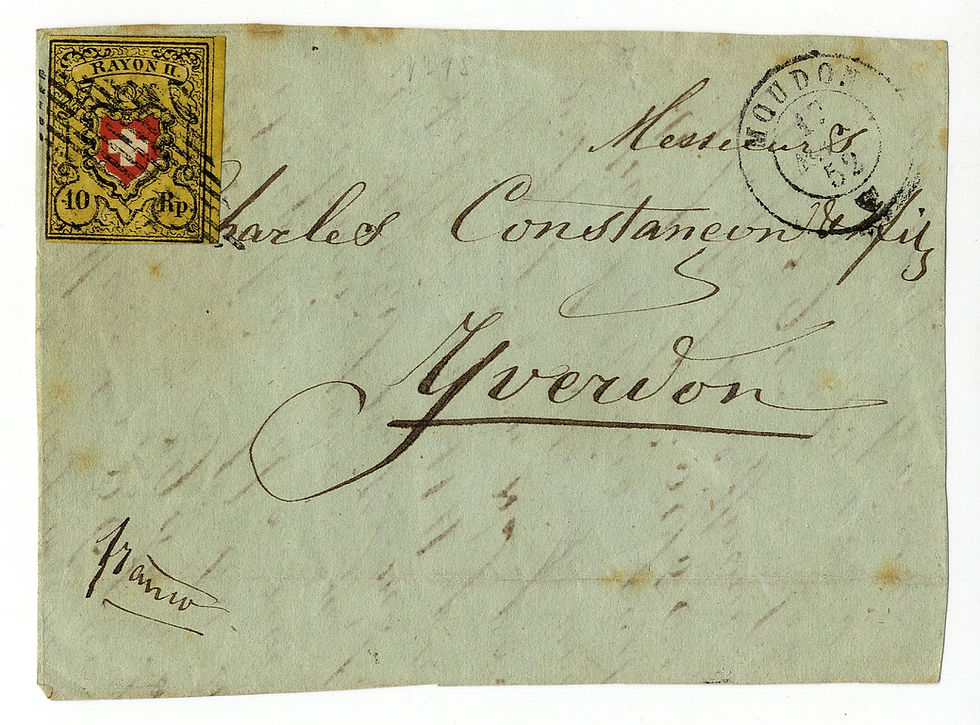 RAYON II.
10 Rp.
MOUDON
52
Messieurs
Charles Constançon & fils
Yverdon
franco